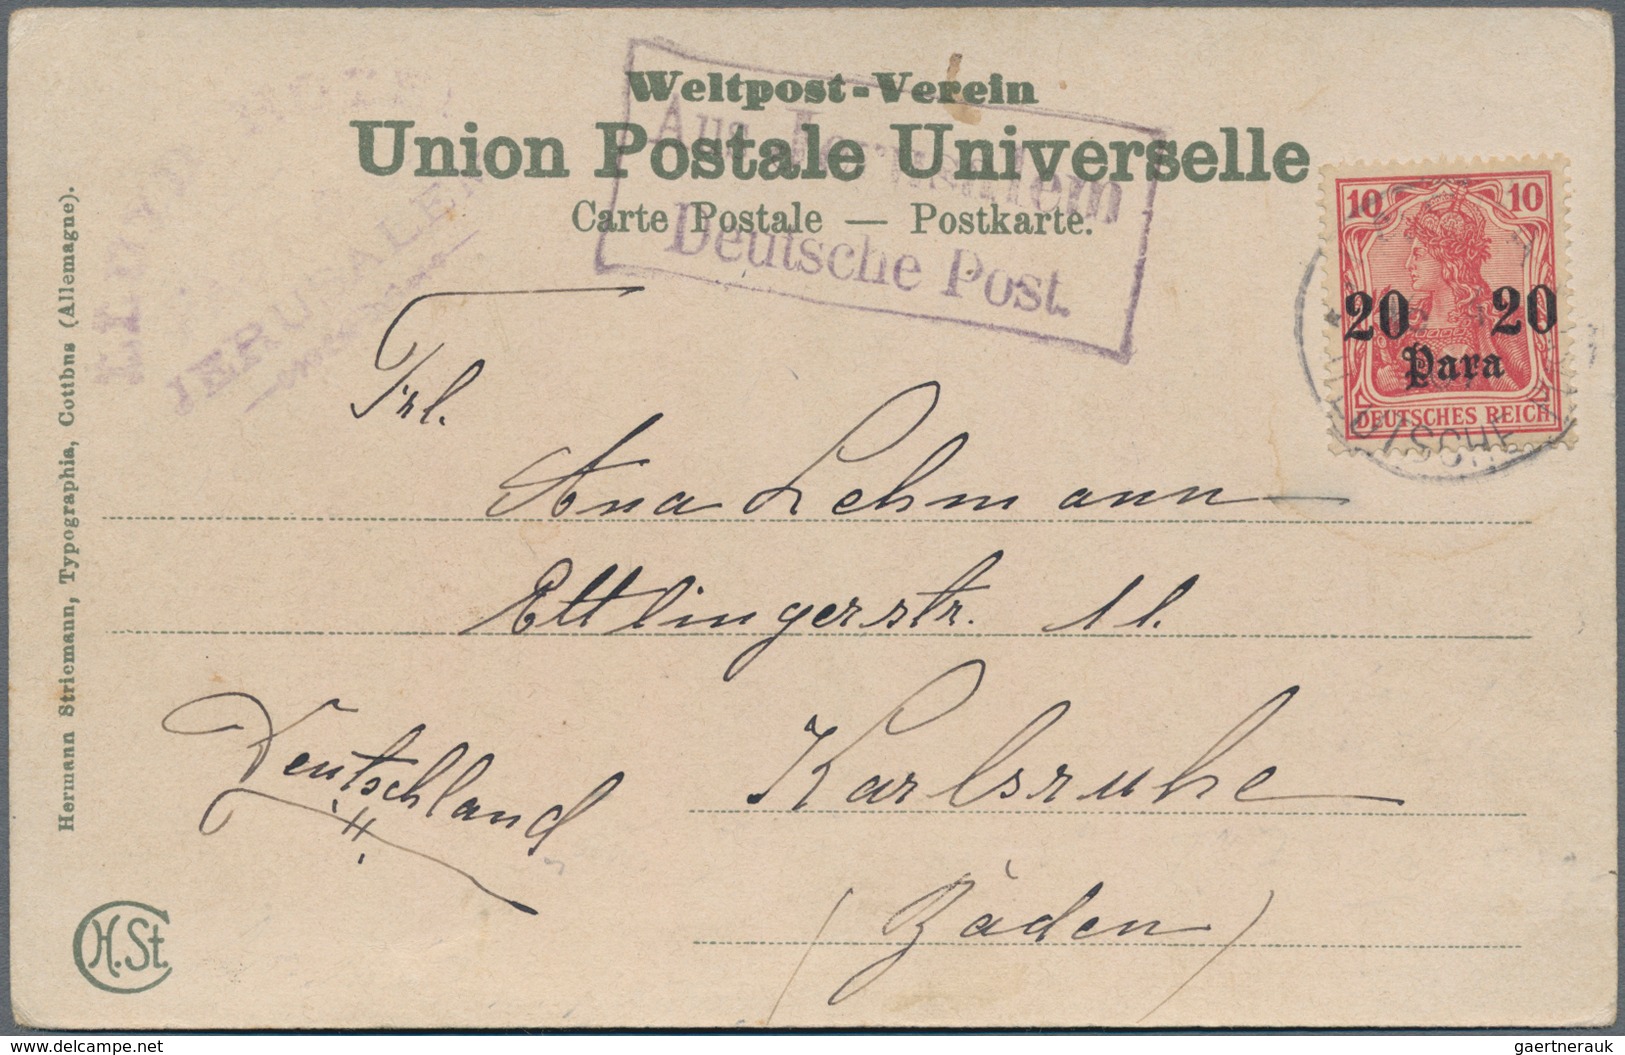 Weltpost-Verein
Union Postale Universelle
Carte Postale — Postkarte.
Aus Jerusalem
Deutsche Post.
LLOYD
HOTEL
JERUSALEM
10 10
20 20
Para
DEUTSCHES REICH
DEUTSCHE
Frl.
Ana Lehmann
Ettlingerstr. 11.
Karlsruhe
(Baden)
Deutschland
Hermann Stricmann, Typographia, Cottbns (Allemagne).
H.St.
delcampe.com
gaertnerauk